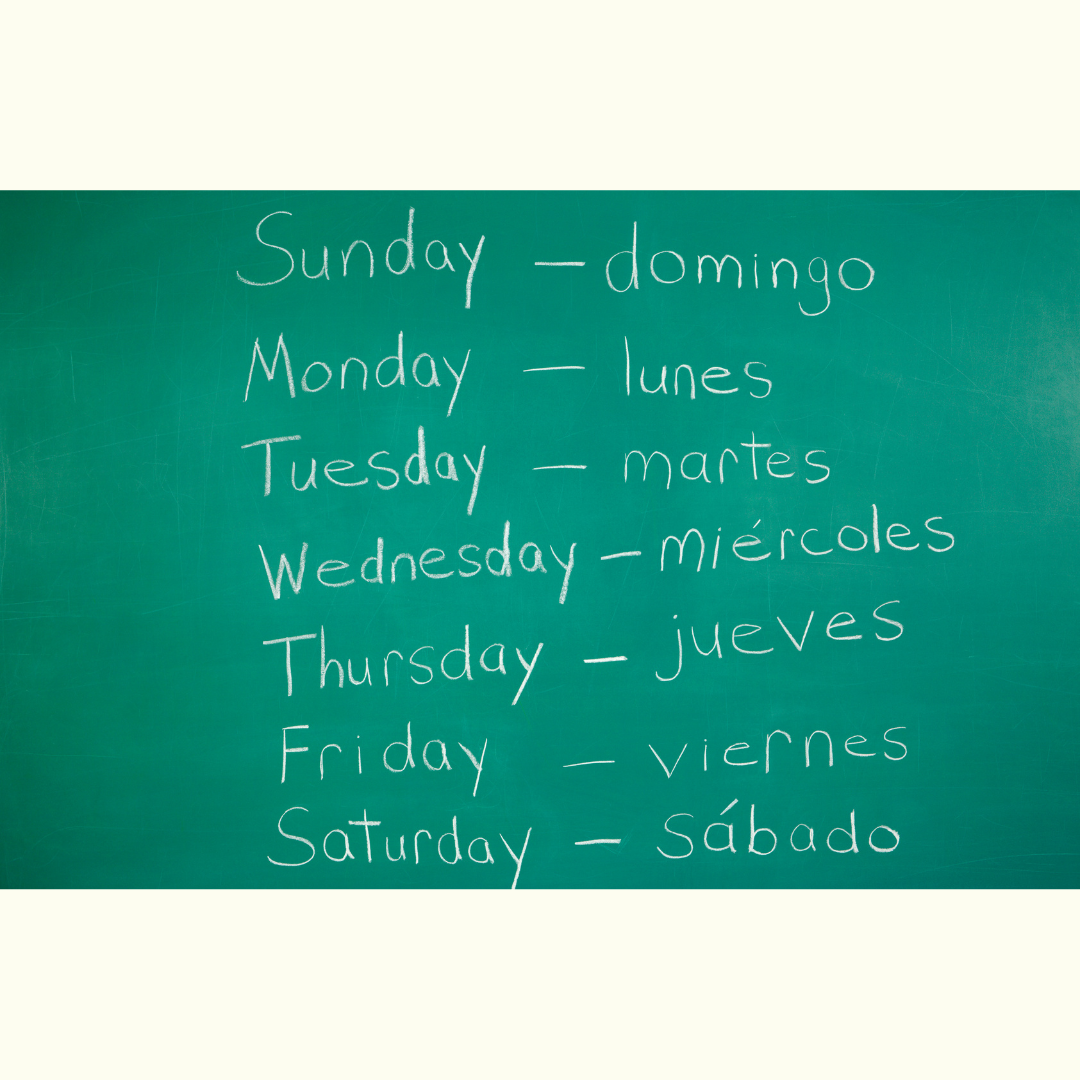 Sunday — domingo
Monday — lunes
Tuesday — martes
Wednesday — miércoles
Thursday — jueves
Friday — viernes
Saturday — sábado